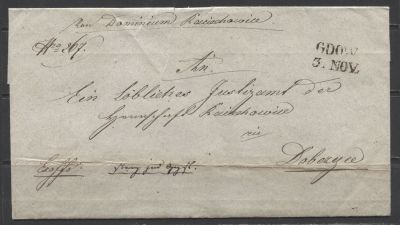 Von Dominium Raciechowice
No 267.
GDOW
3. NOV.
An
Ein löbliches Justizamt der
Herrschaft Raciechowice
in
Dobczyce